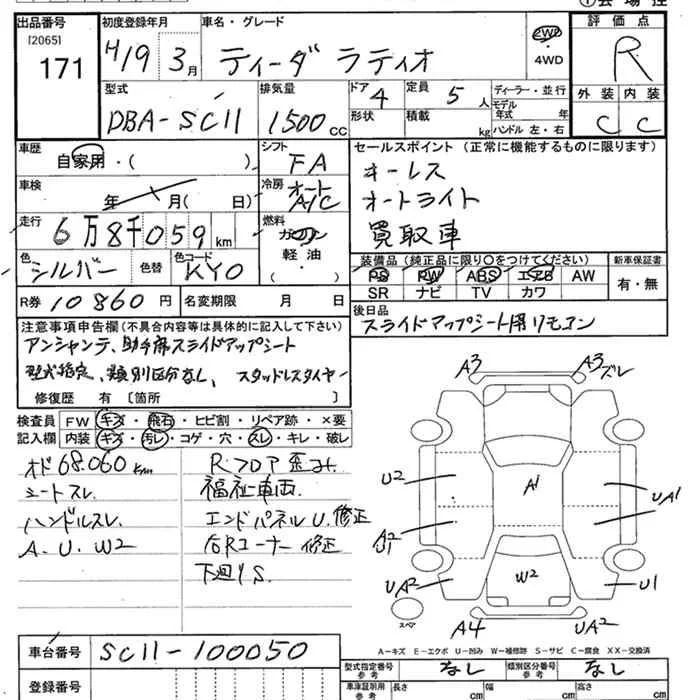 ①会場控
出品番号 初度登録年月 車名・グレード 評価点
[2065]
171 H19 3月 ティーダ ラティオ 2WD・4WD R
型式 排気量 ドア 4 定員 5人 ディーラー・並行 外装 内装
DBA-SC11 1500cc 形状 積載 kg モデル年式 年 ハンドル 左・右 C C
車歴 自家用・( ) シフト FA セールスポイント (正常に機能するものに限ります)
車検 年 月( 日) 冷房 オート A/C キーレス
オートライト
走行 6万8千059km 燃料 ガソリン・軽油・( ) 買取車
色 シルバー 色替 色コード KY0 装備品 (純正品に限り○をつけてください) 新車保証書
PS PW ABS エアB AW 有・無
SR ナビ TV カワ
R券 10860円 名変期限 月 日 後日品
スライドアップシート用リモコン
注意事項申告欄(不具合内容等は具体的に記入して下さい)
アンシャンテ、助手席スライドアップシート
型式指定、類別区分なし、スタッドレスタイヤ
修復歴 有 〔箇所 〕
検査員 FW キズ・飛石・ヒビ割・リペア跡・×要
記入欄 内装 キズ・汚レ・コゲ・穴・スレ・キレ・破レ
オド68.060km Rフロア歪み
シートスレ 福祉車両
ハンドルスレ エンドパネルU.修正
A.U.W2 右Rコーナー修正
下廻りS
A3 A3ズレ
U2 A1 UA1
A2
U1
UA2 W2 U1
スペア A4 UA2
A-キズ E-エクボ U-凹み W-補修跡 S-サビ C-腐食 XX-交換済
車台番号 SC11-100050
型式指定番号 参考 なし 類別区分番号 参考 なし
登録番号 車庫証明用 参考 長さ cm 幅 cm 高さ cm